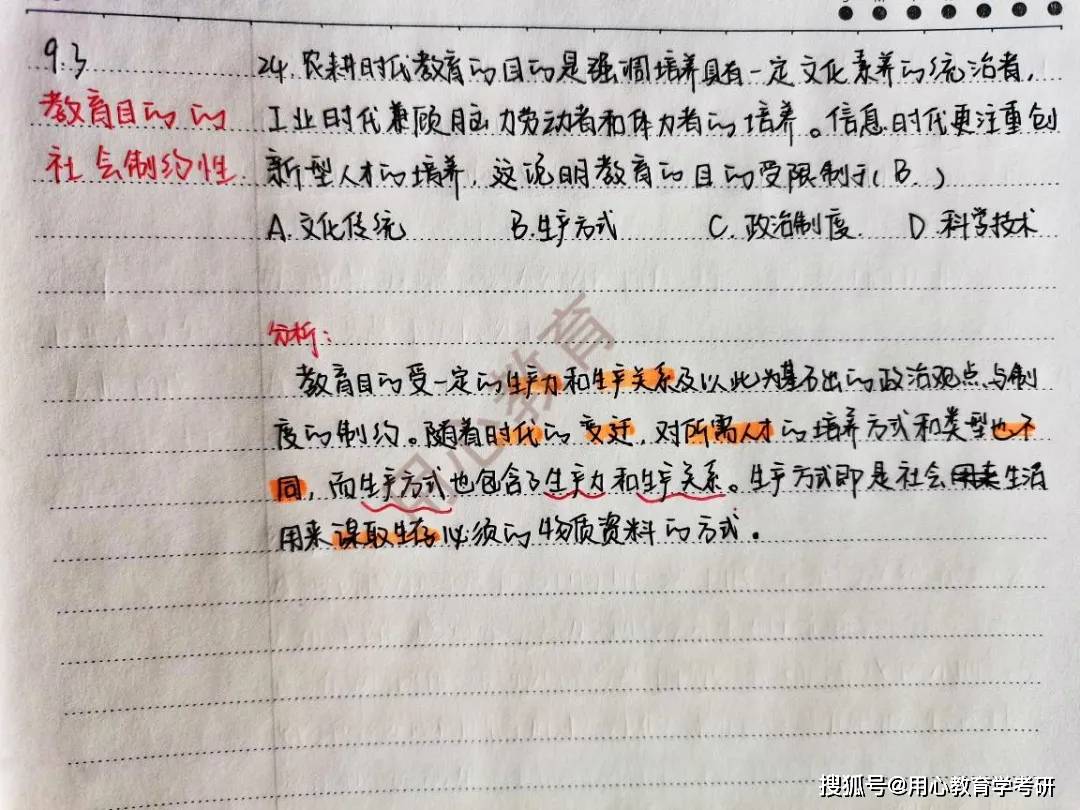 9.3
教育目的的
社会制约性
24.农耕时代教育的目的是强调培养具有一定文化素养的统治者,
工业时代兼顾脑力劳动者和体力者的培养。信息时代更注重创
新型人才的培养,这说明教育的目的受限制于(B.)
A.文化传统 B.生产方式 C.政治制度. D.科学技术
分析:
教育目的受一定的生产力和生产关系及以此为基石出的政治观点与制
度的制约。随着时代的变迁,对所需人才的培养方式和类型也不
同,而生产方式也包含了生产力和生产关系。生产方式即是社会生活
用来谋取生存必须的物质资料的方式。
用心教育
搜狐号@用心教育学考研